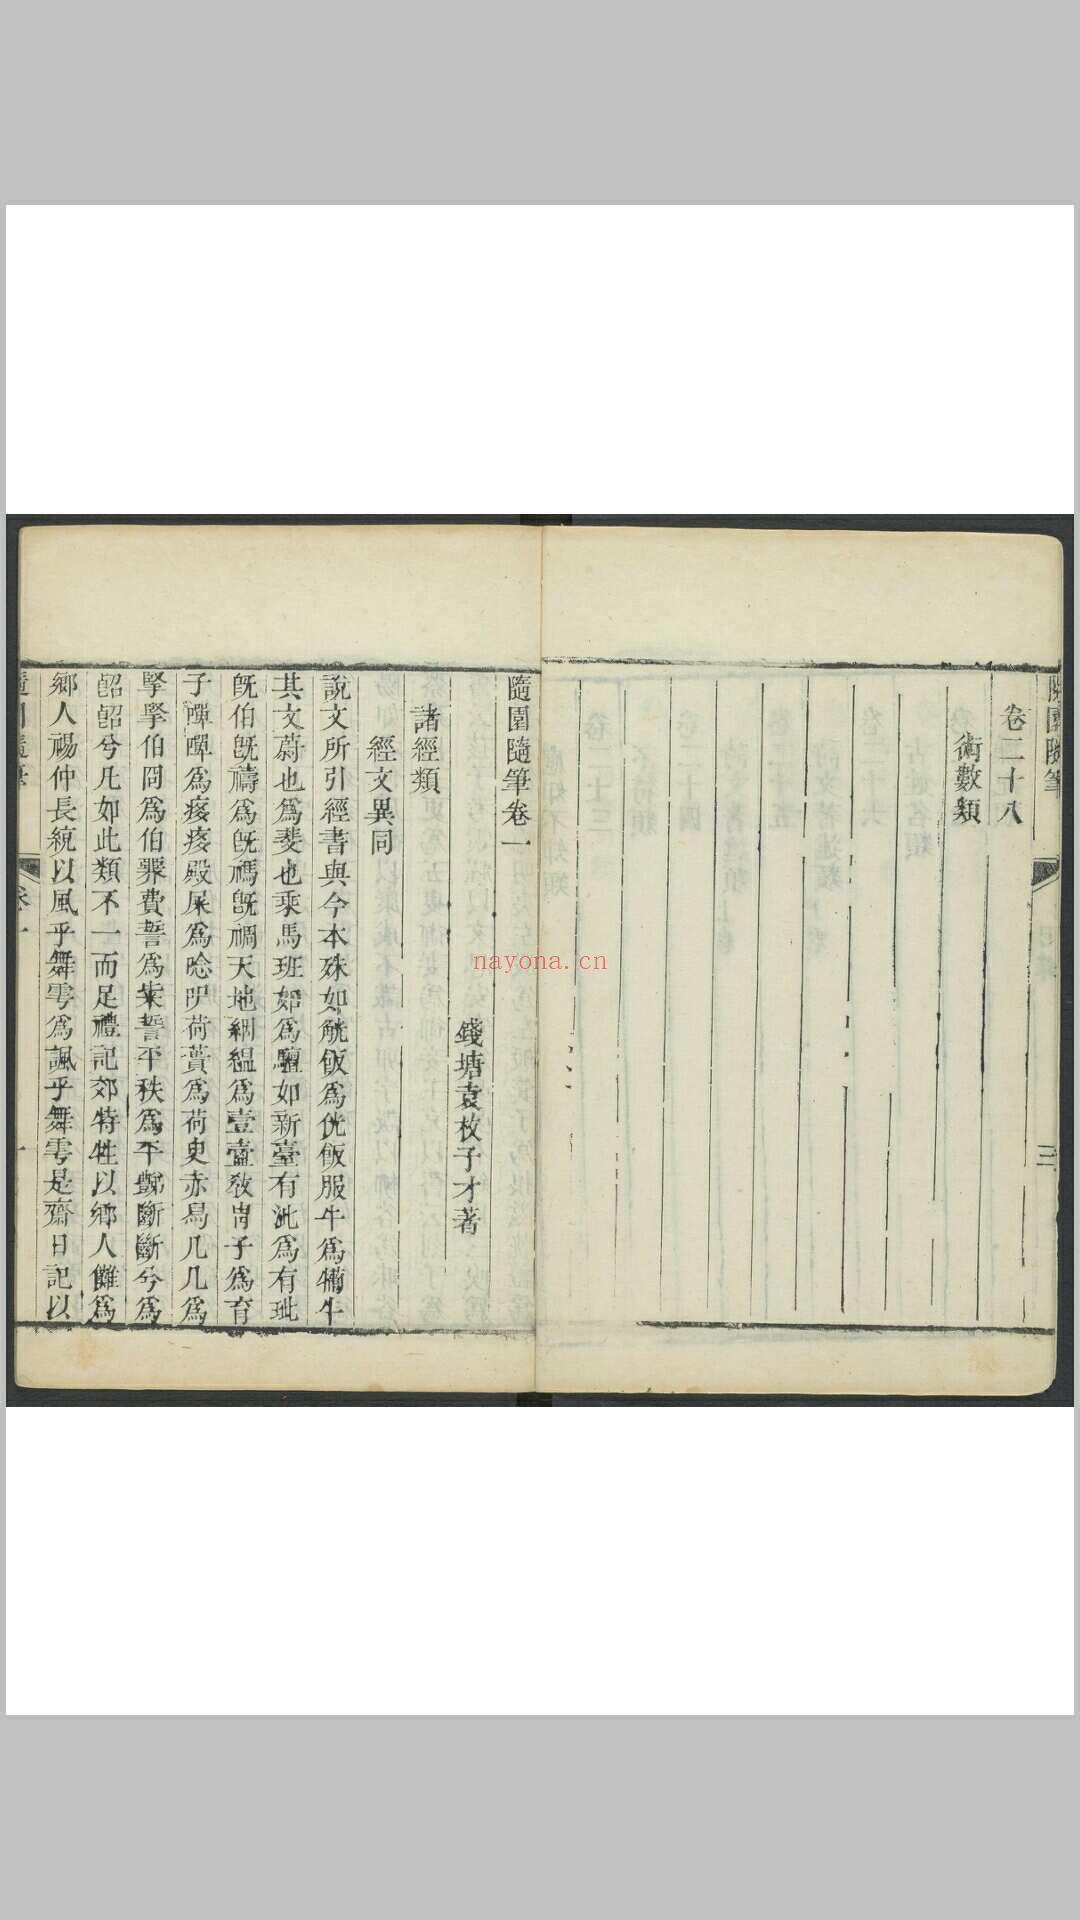 隨園隨筆
三
卷二十八
術數類
隨園隨筆卷一
錢塘袁枚子才著
諸經類
經文異同
說文所引經書與今本殊如觥飯為侊飯服牛為犕牛
其文蔚也為斐也乘馬班如為驙如新臺有泚為有玼
旣伯旣禱為旣禡旣禂天地絪縕為壹壺敎胄子為育
子嘽嘽為痑痑殿屎為唸㕧荷蕢為荷臾赤舄几几為
掔掔伯冏為伯臩費誓為粊誓平秩為平豑斷斷兮為
㫁㫁兮凡如此類不一而足禮記郊特牲以鄉人儺為
鄉人禓仲長統以風乎舞雩為諷乎舞雩是齋日記以
卷一
一
nayona.cn